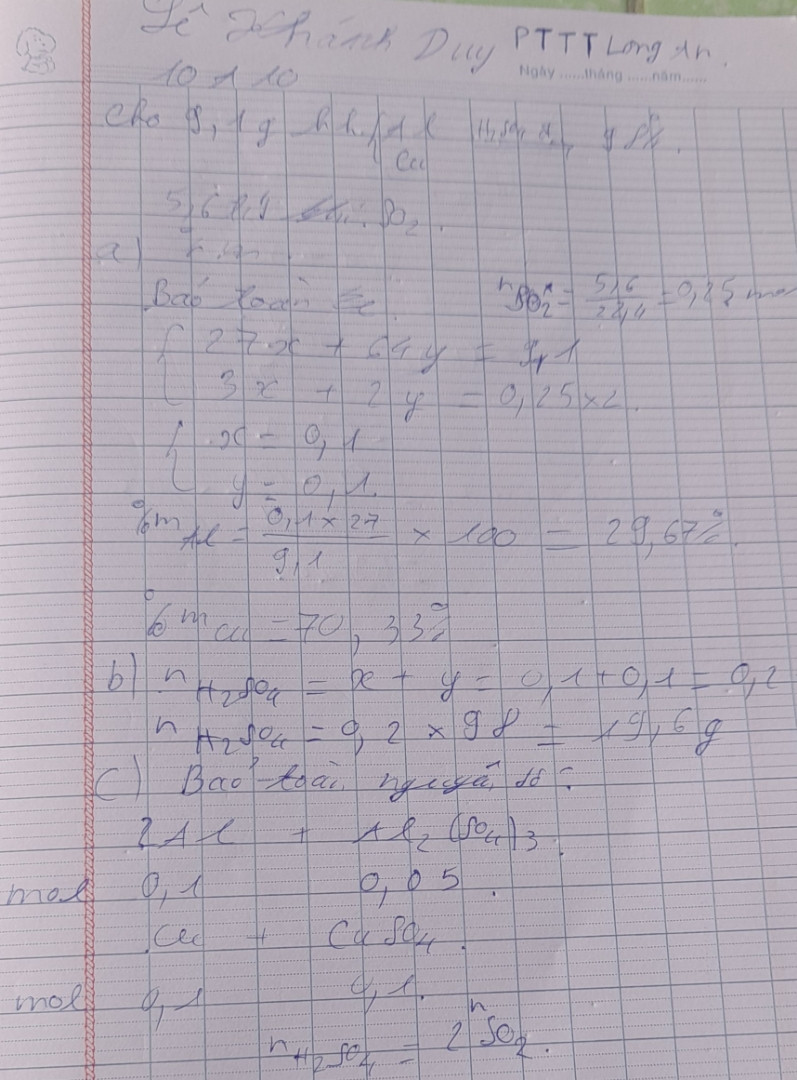 Lê Khánh Duy PTTT Long An.
Ngày ......tháng ......năm......
10A10
Cho 9,1g hh Al H₂SO₄ 98%.
Cu
5,6 SO₂.
a)
Bảo toàn e: nSO₂ = 5,6/22,4 = 0,25 mol
{ 27x + 64y = 9,1
3x + 2y = 0,25 x 2.
{ x = 0,1
y = 0,1.
%mAl = 0,1 x 27/9,1 x 100 = 29,67%.
%mCu = 70,33%
b) nH₂SO₄ = x + y = 0,1 + 0,1 = 0,2
nH₂SO₄ = 0,2 x 98 = 19,6g
c) Bảo toàn nguyên tố:
2Al + Al₂(SO₄)₃.
mol 0,1 0,05.
Cu + CuSO₄.
mol 0,1 0,1.
nH₂SO₄ = 2nSO₂.